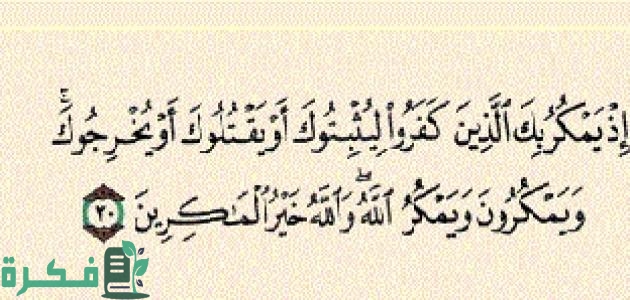 إِذْ يَمْكُرُ بِكَ ٱلَّذِينَ كَفَرُوا۟ لِيُثْبِتُوكَ أَوْ يَقْتُلُوكَ أَوْ يُخْرِجُوكَ ۚ
وَيَمْكُرُونَ وَيَمْكُرُ ٱللَّهُ ۖ وَٱللَّهُ خَيْرُ ٱلْمَـٰكِرِينَ ٣٠
فكرة